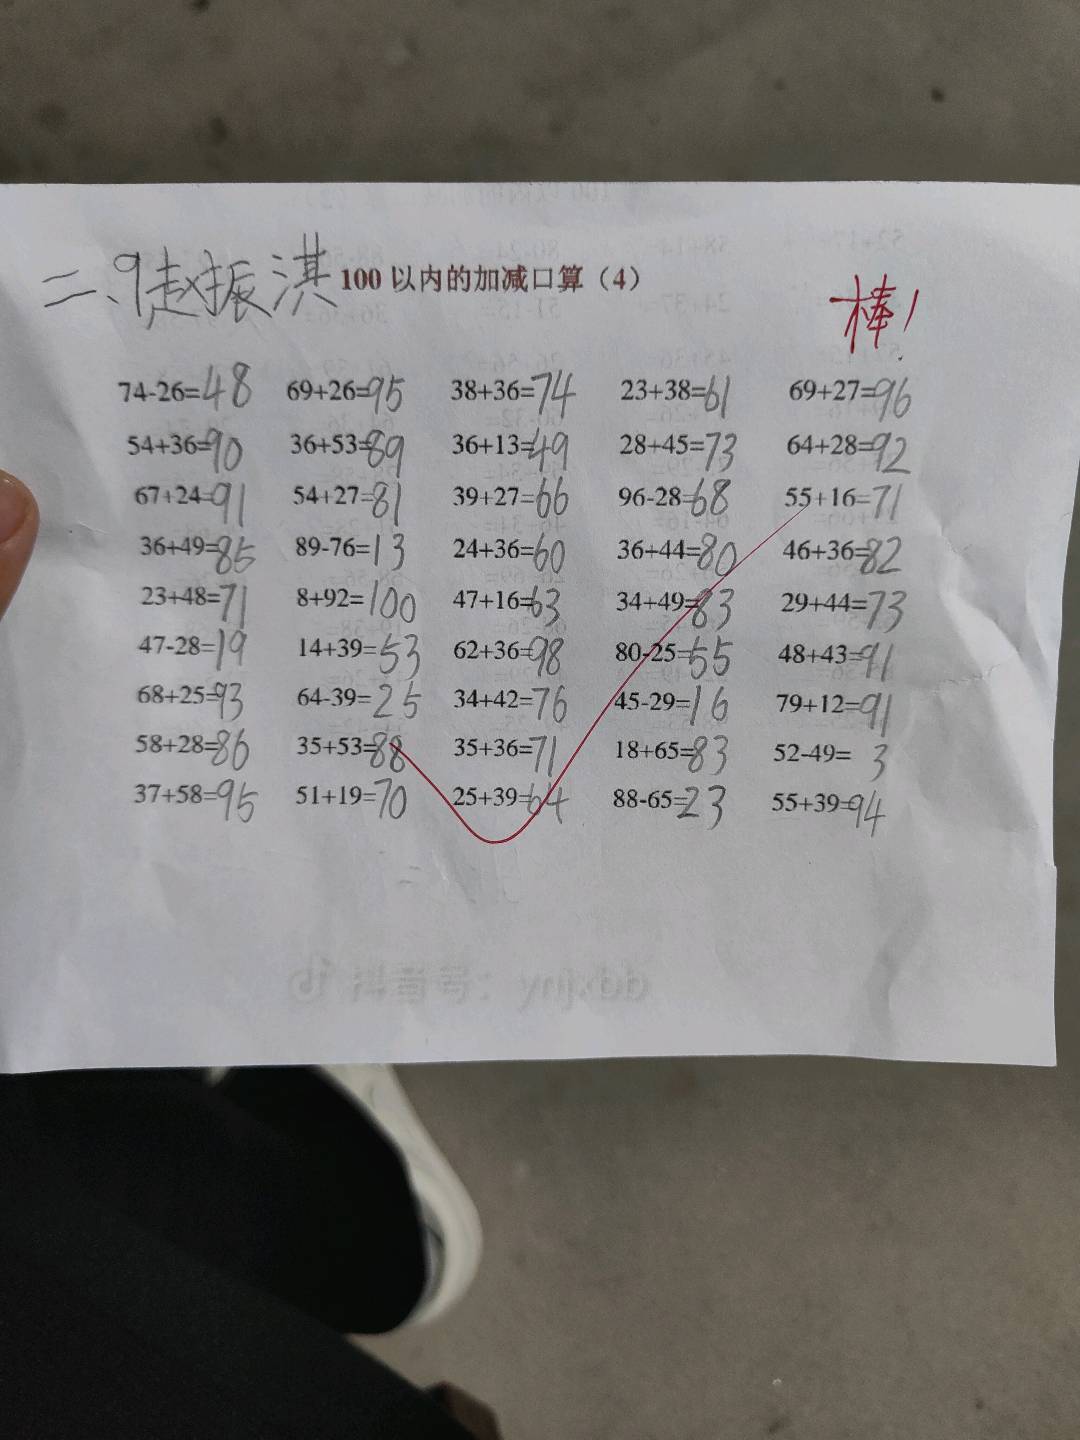 二、9赵振淇 100 以内的加减口算（4）
棒！
74-26=48 69+26=95 38+36=74 23+38=61 69+27=96
54+36=90 36+53=89 36+13=49 28+45=73 64+28=92
67+24=91 54+27=81 39+27=66 96-28=68 55+16=71
36+49=85 89-76=13 24+36=60 36+44=80 46+36=82
23+48=71 8+92=100 47+16=63 34+49=83 29+44=73
47-28=19 14+39=53 62+36=98 80-25=55 48+43=91
68+25=93 64-39=25 34+42=76 45-29=16 79+12=91
58+28=86 35+53=88 35+36=71 18+65=83 52-49=3
37+58=95 51+19=70 25+39=64 88-65=23 55+39=94
抖音号：ynjxbb